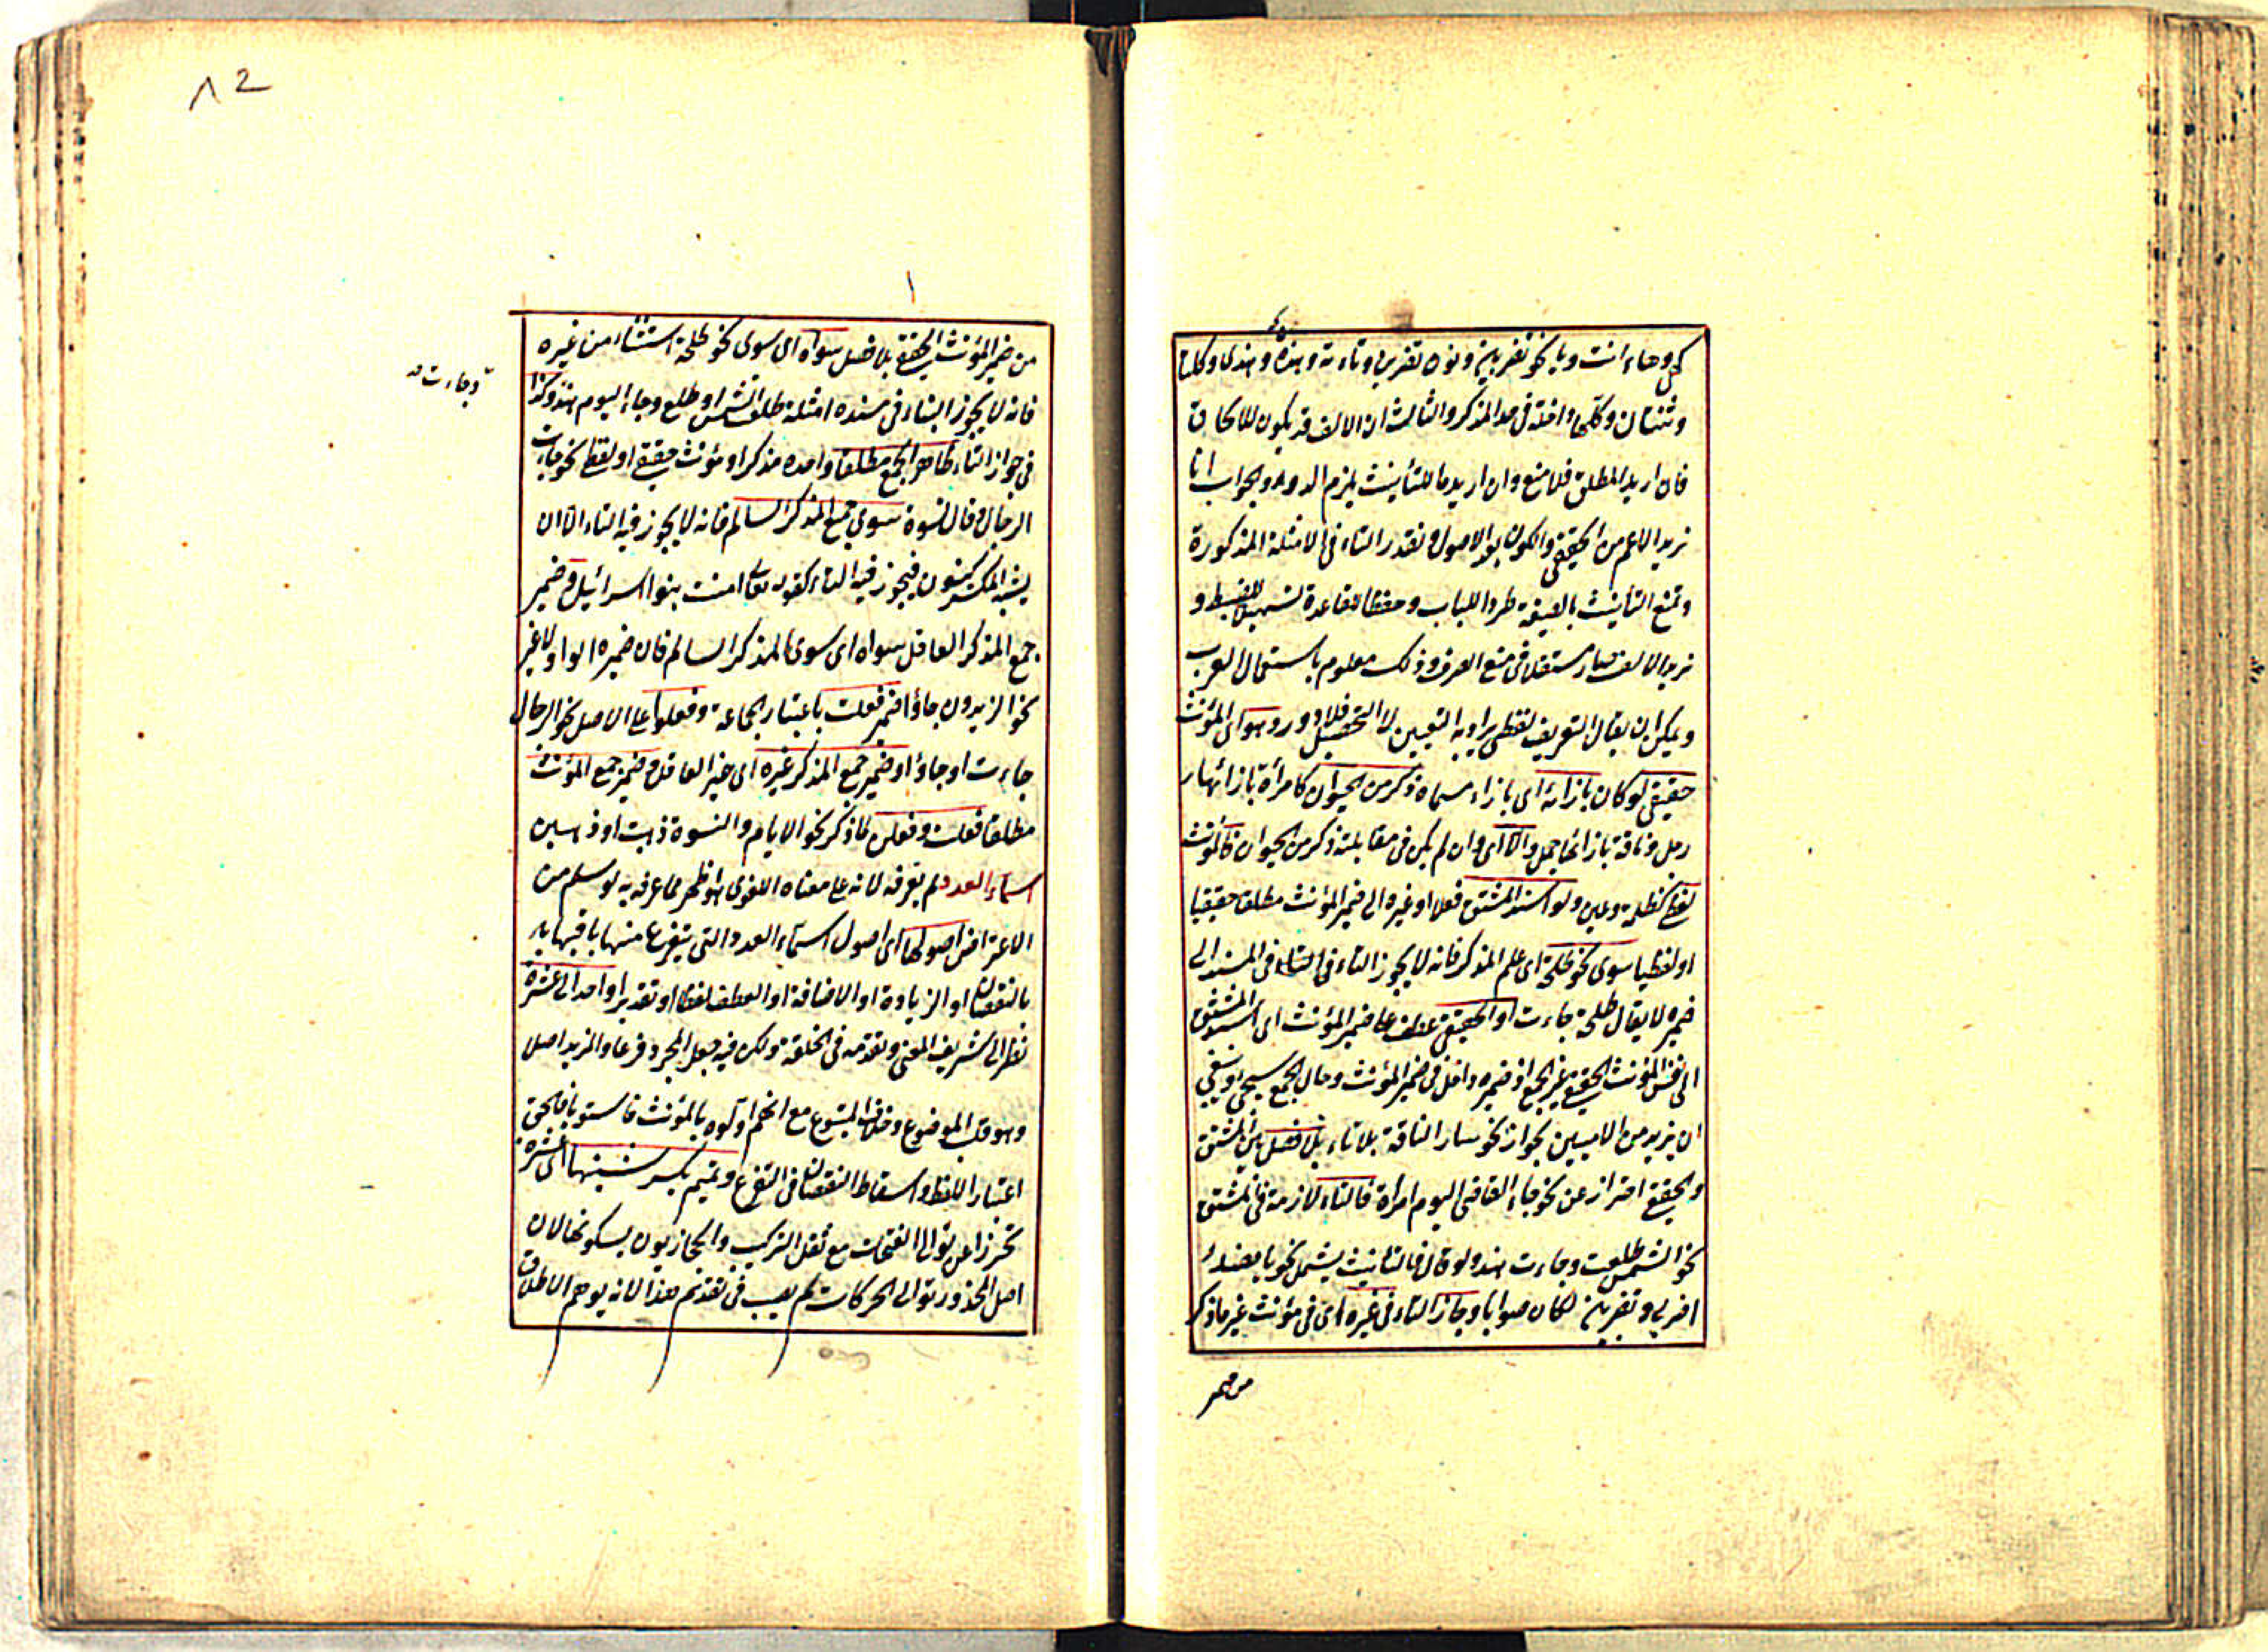 كى وهاء انت وياء نحو تضربين ونون تضربن وتاء ته وهذه وهندى وكلتا
وثنتان وكلها داخلة فى حد المذكر والثالث ان الالف قد يكون للالحاق
فان اريد المطلق فلا منع وان اريد ما للتأنيث يلزم الدور والجواب انا
نريد الاعم من الحقيقى والكون بعد الاصول ونقدر التاء فى الامثلة المذكورة
ونمنع التأنيث بالصيغة طردا للباب وحفظا للقاعدة لتسهيل الضبط و
نريد الالف صار مستقلا فى منع الصرف وذلك معلوم باستعمال العرب
ويمكن ان يقال التعريف لفظى يراد به التعيين لا التحصيل فلا دور وهو اى المؤنث
حقيقى لو كان بازائه اى بازاء مسماه ذكر من الحيوان كامرأة بازائها
رجل وناقة بازائها جمل والا اى وان لم يكن فى مقابلته ذكر من الحيوان فالمؤنث
لفظى كظلمة وعين ولو اسند المشتق فعلا او غيره الى ضمير المؤنث مطلقا حقيقيا
او لفظيا سوى نحو طلحة اى علم المذكر فانه لا يجوز التاء فى المسند الى
ضميره لا يقال طلحة جاءت او الحقيقى عطف على ضمير المؤنث اى اسند المشتق
الى نفس المؤنث الحقيقى غير الجمع اذ ضميره داخل فى ضمير المؤنث وحال الجمع سيجئ وينبغى
ان يزيد من الاٰدميين لجواز نحو سار الناقة بلا تاء بلا فصل بين المشتق
والحقيقى احتراز عن نحو جاء القاضى اليوم امراة فالتاء لازمة فى المشتق
نحو الشمس طلعت وجاءت هند ولو قال فالتأنيث يشمل نحو يا
اضربى وتضربين لكان صوابا وجاز التاء فى غيره اى فى مؤنث غير ما ذكر
من ضمير
٨٢
من ضمير المؤنث الحقيقى بلا فصل سواه اى سوى نحو طلحة استثناء من غيره
فانه لا يجوز التاء فى مسنده امثلة طلعت الشمس او طلع وجاء اليوم هند وكذا
وجاءت
فى جواز التاء ظاهر الجمع مطلقا واحده مذكر او مؤنث حقيقى او لفظى نحو جاءت
الرجال وقال نسوة سوى جمع المذكر السالم فانه لا يجوز فيه التاء الا ان
يشبه المكسر كبنون فيجوز فيه التاء كقوله تعالى امنت بنوا اسرائيل وضمير
جمع المذكر العاقل سواه اى سوى المذكر السالم فان ضميره الواو لا غير
نحو الزيدون جاؤا ضمير فعلت باعتبار الجماعة وفعلوا على الاصل نحو الرجال
جاءت او جاؤا وضمير جمع المذكر غيره اى غير العاقل وضمير جمع المؤنث
مطلقا فعلت وفعلن لما ذكر نحو الايام والنسوة ذهبت او ذهبن
اسماء العدد لم يعرفه لانه على معناه اللغوى اذ هو اظهر مما عرفه به لو سلم من
الاعتراض اصولها اى اصول اسماء العدد والتى يتفرع منها باقيها
بالنقصان او الزيادة او الاضافة او العطف لفظا او تقديرا واحد الى عشرة
نظرا الى شريف المعنى وتقدمه فى الخلقة ولكن فيه جعل المجرد فرعا والمزيد اصلا
وهو قلب الموضوع وخلاف المتبوع مع انهم اولوه بالمؤنث فاستويا فالحق
اعتبار اللفظ واسقاط النقصان فى التفرع وتميم بكسر شينها اى عشرة
تحرزا عن توالى الفتحات مع ثقل التركيب والحجازيون يسكونها لان
اصل المحذور توالى الحركات لم يصب فى تقديم هذا لانه يوهم الاطلاق